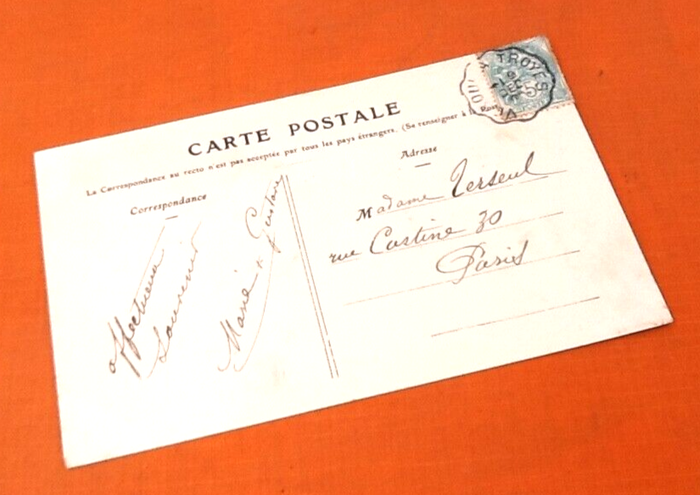 TROYES
CARTE POSTALE
La Correspondance au recto n'est pas acceptée par tous les pays étrangers. (Se renseigner à la Poste)
Correspondance
Adresse
Affectueux
Souvenir
Marie & Gustave
Madame Terseul
rue Castine 30
Paris